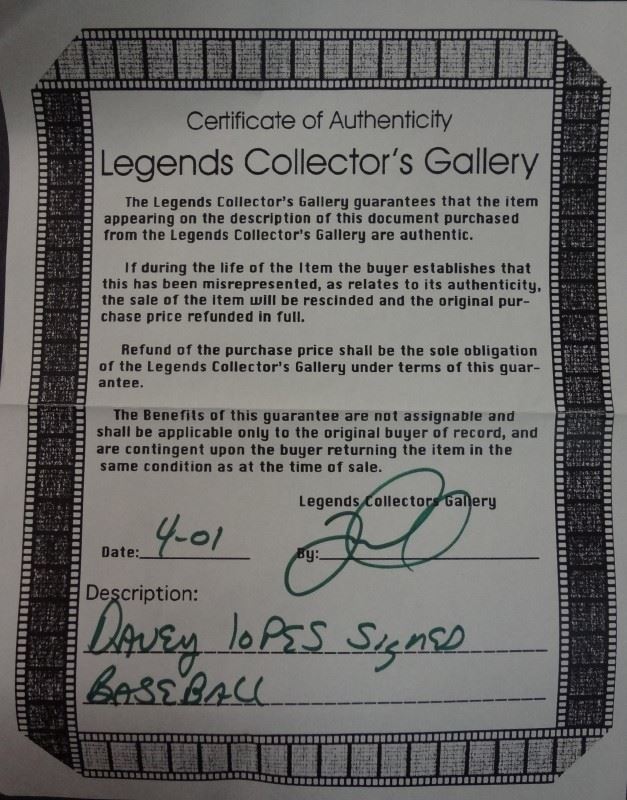 Certificate of Authenticity
Legends Collector's Gallery
The Legends Collector's Gallery guarantees that the item
appearing on the description of this document purchased
from the Legends Collector's Gallery are authentic.
If during the life of the Item the buyer establishes that
this has been misrepresented, as relates to its authenticity,
the sale of the item will be rescinded and the original pur-
chase price refunded in full.
Refund of the purchase price shall be the sole obligation
of the Legends Collector's Gallery under terms of this guar-
antee.
The Benefits of this guarantee are not assignable and
shall be applicable only to the original buyer of record, and
are contingent upon the buyer returning the item in the
same condition as at the time of sale.
Legends Collectors Gallery
Date: 4-01 By:
Description:
DAVEY loPES SIgnED
BASEBALL